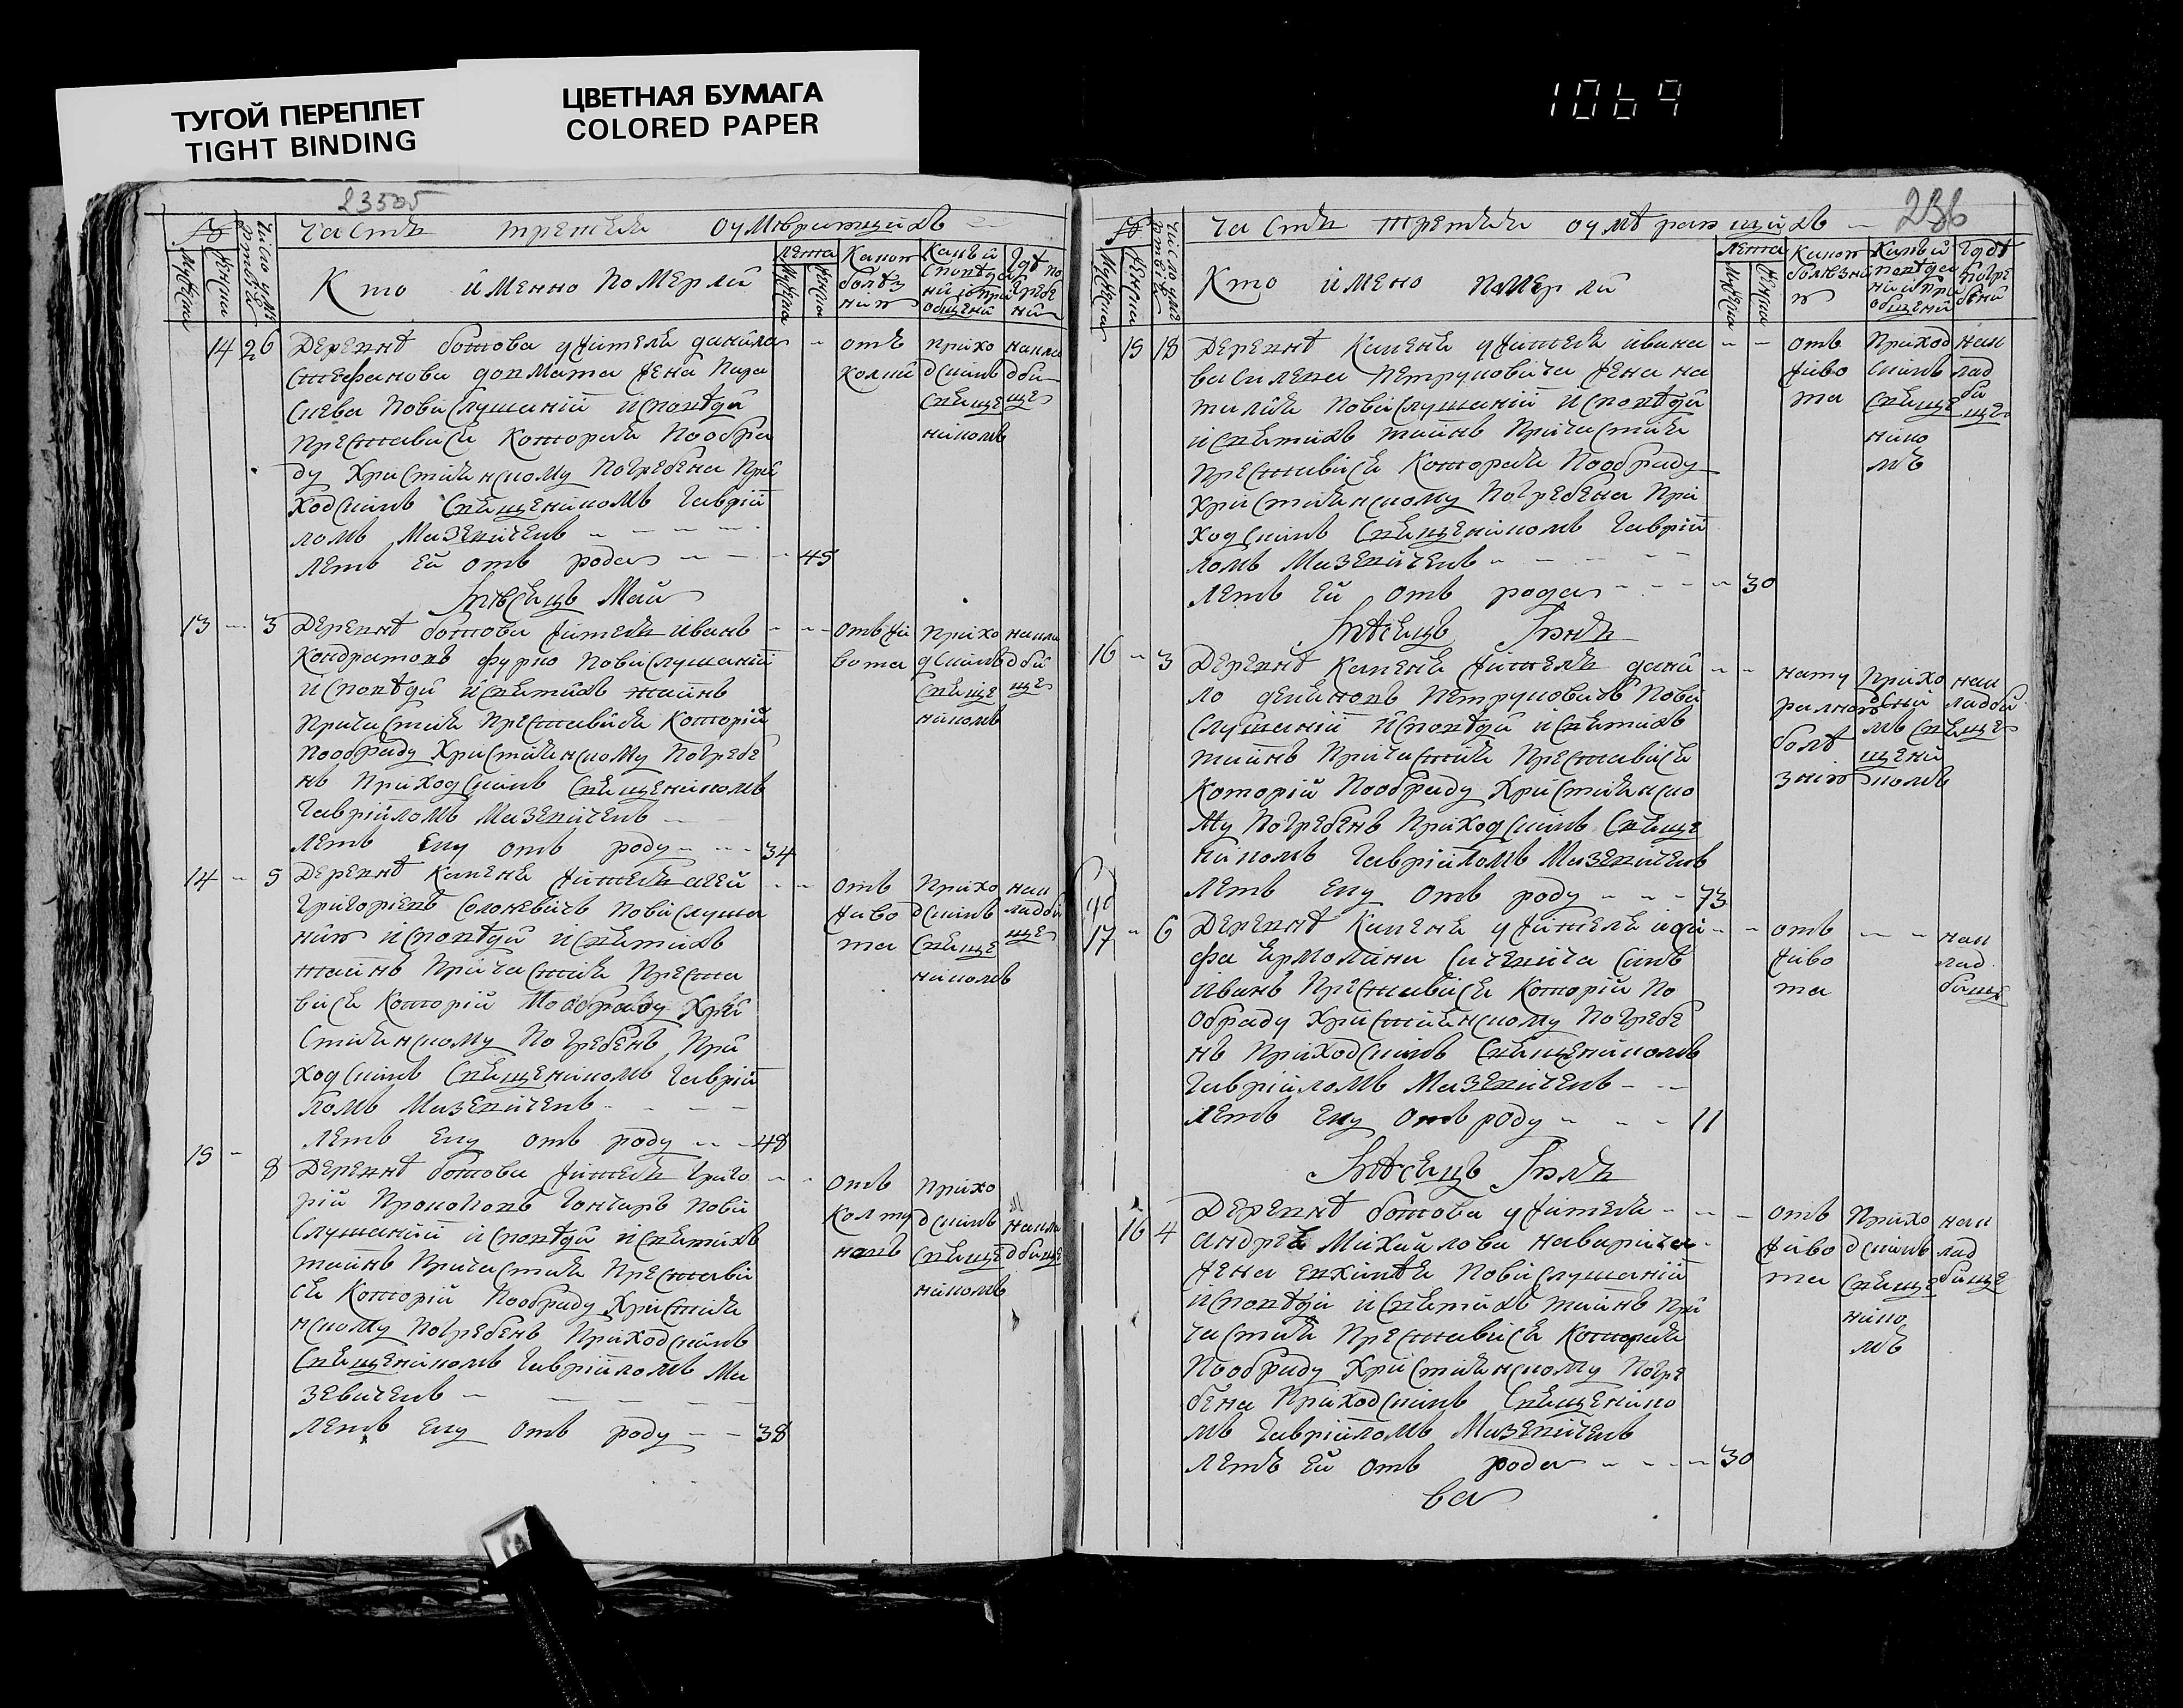 ТУГОЙ ПЕРЕПЛЕТ
TIGHT BINDING
ЦВЕТНАЯ БУМАГА
COLORED PAPER
1069
23505
Часть третяя оумѣрающихъ
Мужеска
Женска
Кто именно померли
Лета
14 26 Деревнѣ ботова у жителя данила
Стефанова жена Пара
Скева повислушаній исповѣди
Преставися Которая пообра
ду Християнскому погребена При
ходскимъ Священикомъ Гаврій
ломъ Мазевичемъ
Летъ ей отъ рода 45
отъ
приходскимъ
Священикомъ
на кладбище
Мѣсяцъ Май
13 3 Деревнѣ ботова житель иванъ
Кондратовъ фурно повислушаній
исповѣди исвятихъ таинъ
причастия преставися Которій
пообраду Християнскому погребе
нъ Приходскимъ Священикомъ
Гавріиломъ Мазевичемъ
Летъ ему отъ роду 34
отъ живота
приходскимъ
Священикомъ
на кладбище
14 5 Деревнѣ Каменя житель
Григоріевъ Солоневичъ повислуша
нию исповѣди исвятихъ
таинъ Причастия Преста
вися Которій Пообраду Хри
стиянскому Погребенъ При
ходскимъ Священикомъ Гаврій
ломъ Мазевичемъ
Летъ ему отъ роду 48
отъ живота
Приходскимъ
Священикомъ
на кладбище
15 8 Деревнѣ ботова житель Григо
рій Прокоповъ Гончаръ Пови
слушаній исповѣди исвятихъ
таинъ Причастия Престави
ся Которій пообраду Христия
нскому погребенъ Приходскимъ
Священикомъ Гавріиломъ Ма
зевичемъ
Летъ ему отъ роду 38
отъ
приходскимъ
Священикомъ
на кладбище
236
Часть третяя оумѣрающихъ
Мужеска
Женска
Кто имено померли
Лета
15 18 Деревнѣ Каменя у жителя ивана
василева Петруковича жена на
талия повислушаній исповѣди
исвятихъ таинъ причастия
преставися Которая пообраду
християнскому погребена При
ходскимъ Священикомъ Гаврій
ломъ Мазевичемъ
Летъ ей отъ рода 30
отъ живота
Приходскимъ
Священикомъ
на кладбище
Мѣсяцъ Іюнь
16 3 Деревнѣ Каменя житель дани
ло Петруковичъ пови
слушаній исповѣди исвятихъ
таинъ причастия преставися
Которій пообраду Християнско
му погребенъ Приходскимъ Свяще
никомъ Гавріиломъ Мазевичемъ
Летъ ему отъ роду 73
натуралною болѣзнию
Приходскимъ
Священикомъ
на кладбище
17 6 Деревнѣ Каменя у жителя
Синъ
иванъ Преставися Которій по
обраду Християнскому погребе
нъ Приходскимъ Священикомъ
Гавріиломъ Мазевичемъ
Летъ ему отъ роду 11
отъ живота
на кладбище
Мѣсяцъ Іюль
16 4 Деревнѣ ботова у жителя
андрея Михайлова
жена повислушаній
исповѣди исвятихъ таинъ при
частия преставися Которая
пообраду Християнскому погре
бена Приходскимъ Священико
мъ Гавріиломъ Мазевичемъ
Летъ ей отъ рода 30
отъ живота
Приходскимъ
Священикомъ
на кладбище